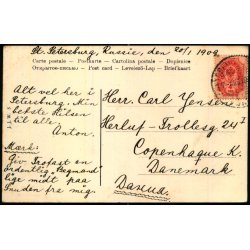 St. Petersburg, Russie, den 20/1 1909.
Carte postale — Postkarte — Cartolina postale — Dopisnice
Открытое письмо — Post card — Levelező-Lap — Briefkaart
Alt vel her i
Petersburg. Min
bedste Hilsen
til alle.
Anton.
Mærk:
Giv Trofast en
ordentlig
midt paa
Snuden fra mig.
Herr. Carl Jensen
Herluf-Trollesg. 24
Copenhague K.
Danemark
Дания.